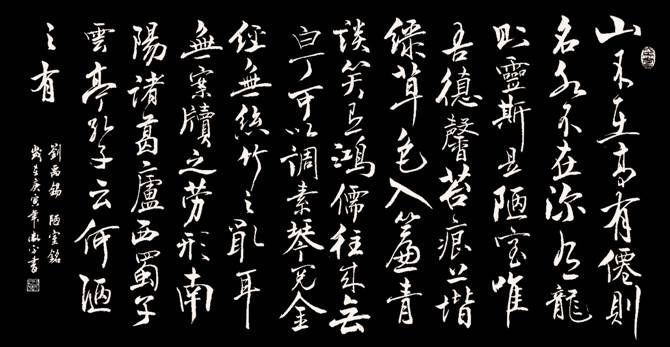 山不在高有僊則
名水不在深有龍
則靈斯是陋室唯
吾德馨苔痕上堦
綠草色入簾青
談笑有鴻儒往來無
白丁可以調素琴閱金
經無絲竹之亂耳
無案牘之勞形南
陽諸葛廬西蜀子
雲亭孔子云何陋
之有
劉禹錫 陋室銘
歲在庚寅年 書